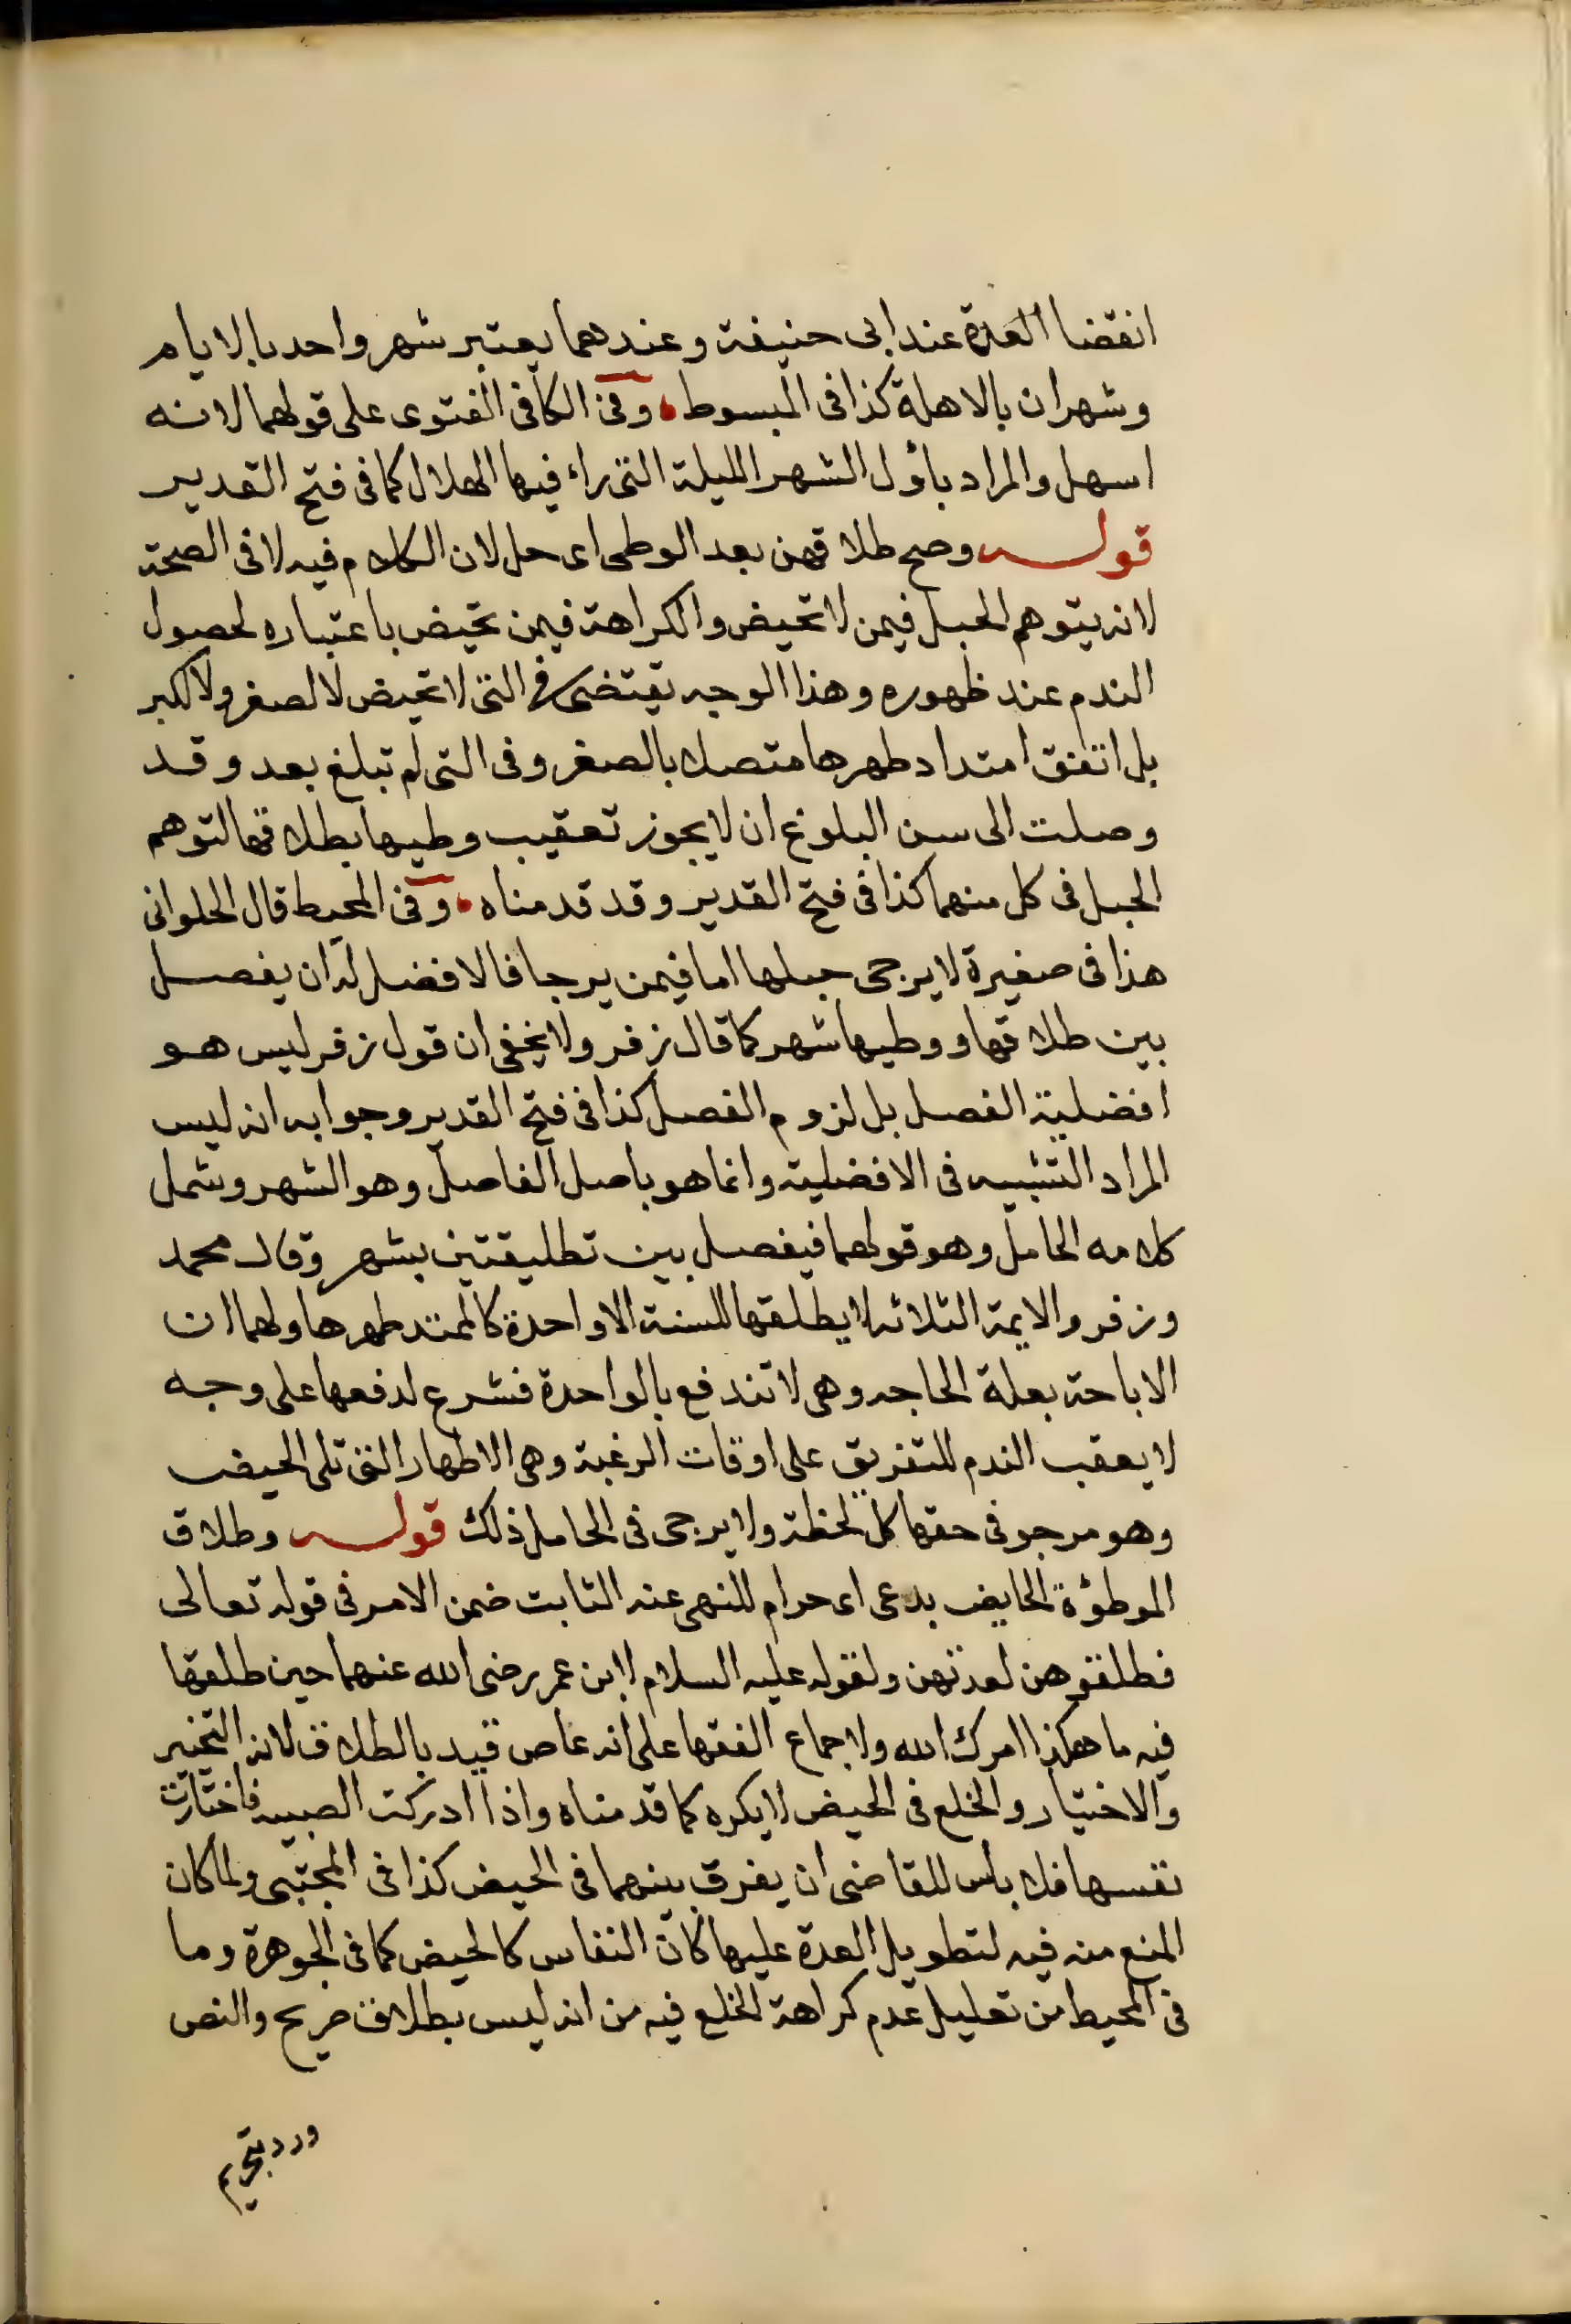 انقضا العدة عند ابى حنيفة وعندهما يعتبر شهر واحد بالايام
وشهران بالاهلة كذا فى المبسوط وفى الكافى الفتوى على قولهما لانه
اسهل والمراد باول الشهر الليلة التى راء فيها الهلال كما فى فتح القدير
قوله وصح طلاقهن بعد الوطى اى حل لان الكلام فيه لا فى الصحة
لانه يتوهم الحبل فيمن لا تحيض والكراهة فيمن تحيض باعتباره لحصول
الندم عند ظهوره وهذا الوجه يقتضى فى التى لا تحيض لا لصغر ولا لكبر
بل اتفق امتداد طهرها متصلا بالصغر وفى التى لم تبلغ بعد وقد
وصلت الى سن البلوغ ان لا يجوز تعقيب وطيها بطلاقها لتوهم
الحبل فى كل منهما كذا فى فتح القدير وقد قدمناه وفى المحيط قال الحلوانى
هذا فى صغيرة لا يرجى حبلها اما فيمن يرجا فالافضل له ان يفصل
بين طلاقها ووطيها شهر كما قال زفر ولا يخفى ان قول زفر ليس هو
افضلية الفصل بل لزوم الفصل كذا فى فتح القدير وجوابه انه ليس
المراد التشبيه فى الافضلية وانما هو باصل الفاصل وهو الشهر وشمل
كلامه الحامل وهو قولهما فيفصل بين تطليقتين بشهر وقال محمد
وزفر والايمة الثلاثه لا يطلقها للسنة الا واحدة كالممتد طهرها ولهما ان
الاباحة بعلة الحاجه وهى لا تندفع بالواحدة فشرع لدفعها على وجه
لا يعقب الندم للتفريق على اوقات الرغبة وهى الاطهار التى تلى الحيض
وهو مرجو فى حقها كل لحظة ولا يرجى فى الحامل ذلك قوله وطلاق
الموطؤة الحايض بدعى اى حرام للنهى عنه الثابت ضمن الامر فى قوله تعالى
فطلقوهن لعدتهن ولقوله عليه السلام لابن عمر رضى الله عنهما حين طلقها
فيه ما هكذا امرك الله ولاجماع الفقها على انه عاص قيد بالطلاق لان التخيير
والاختيار والخلع فى الحيض لا يكره كما قدمناه واذا ادركت الصبيه فاختارت
نفسها فلا باس للقاضى ان يفرق بينهما فى الحيض كذا فى المجتبى ولما كان
المنع منه فيه لتطويل العدة عليها كان النفاس كالحيض كما فى الجوهرة وما
فى المحيط من تعليل عدم كراهة الخلع فيه من انه ليس بطلاق صريح والنص
ورد بتحريم